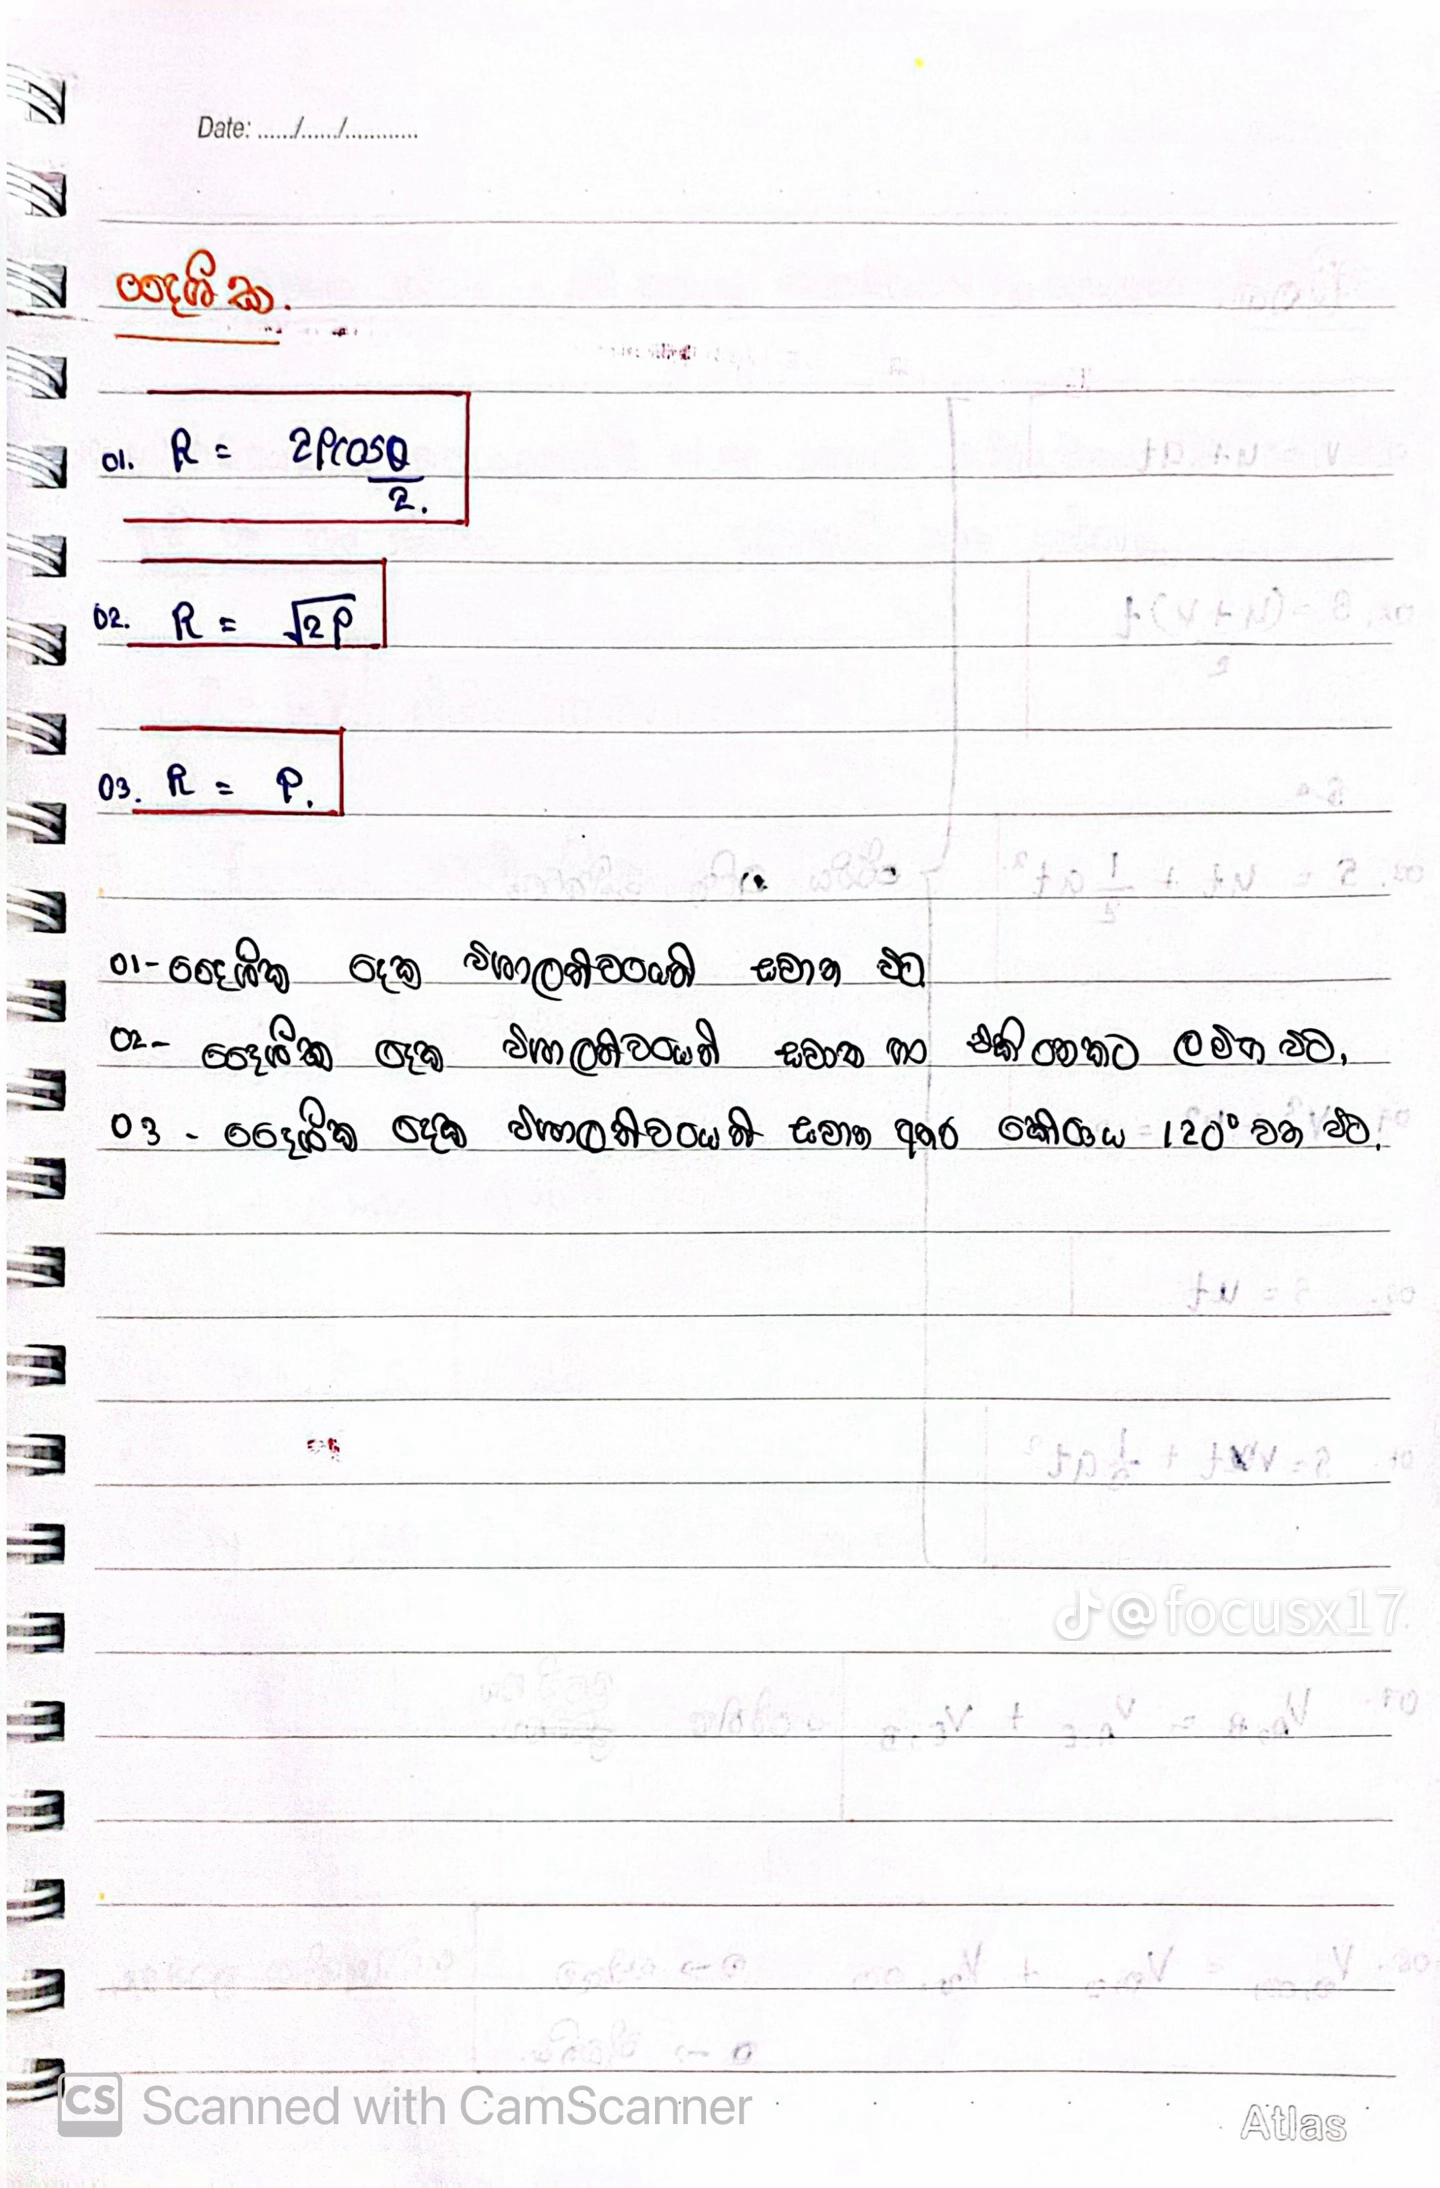 Date: ....../....../............
දෛශික.
01. R = 2Pcosθ/2.
02. R = √2P
03. R = P.
01- දෛශික දෙක විශාලත්වයෙන් සමාන විට
02- දෛශික දෙක විශාලත්වයෙන් සමාන හා එකිනෙකට ලම්භ විට.
03 - දෛශික දෙක විශාලත්වයෙන් සමාන අතර කෝණය 120° වන විට.
@focusx17
CS Scanned with CamScanner
Atlas